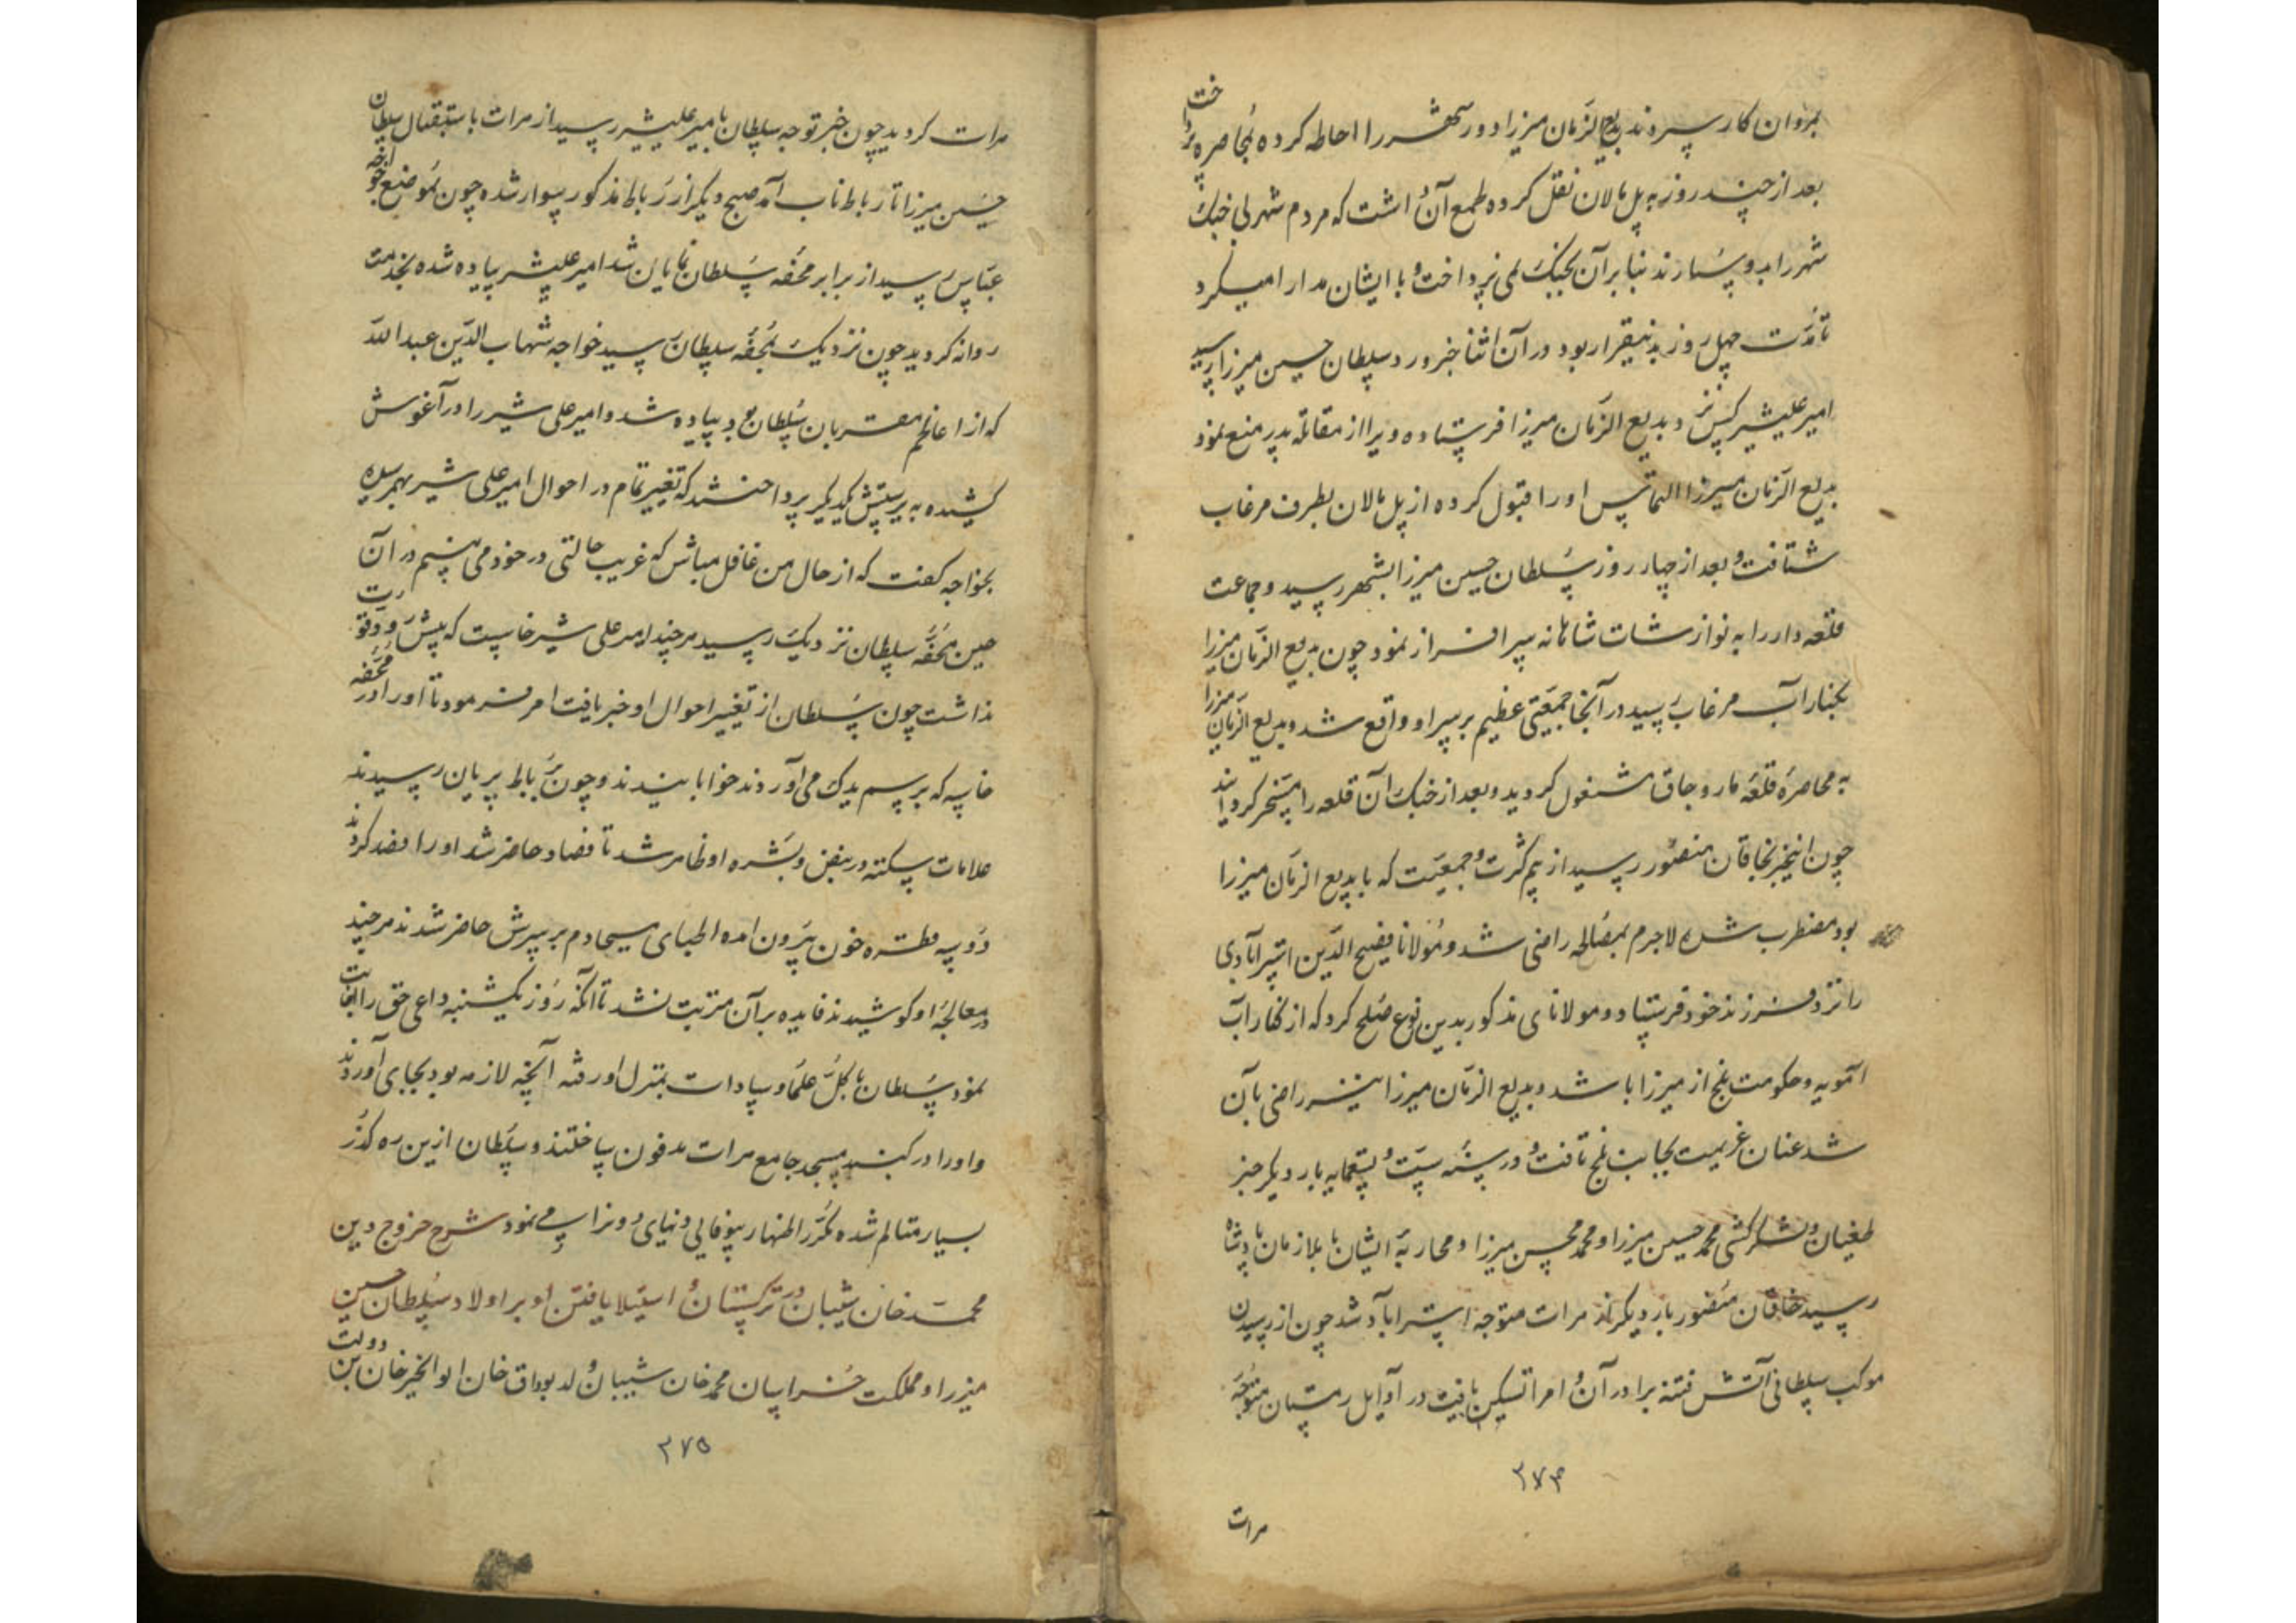 بمردان کار سپردند بدیع الزمان میرزا دور شهر را احاطه کرده بمحاصره پرداخت
بعد از چند روز به پل مالان نقل کرده طمع آن داشت که مردم شهر بی جنک
شهر را بدو سپارند بنابرآن بجنک نمی پرداخت و با ایشان مدارا میکرد
تا مدت چهل روز بدینقرار بود در آن اثنا خبر ورود سلطان حسین میرزا رسید
امیر علیشیر کس نزد بدیع الزمان میرزا فرستاده ویرا از مقاتله پدر منع نمود
بدیع الزمان میرزا التماس او را قبول کرده از پل مالان بطرف مرغاب
شتافت و بعد از چهار روز سلطان حسین میرزا بشهر رسید و جماعت
قلعه دار را به نوازشات شاهانه سرافراز نمود چون بدیع الزمان میرزا
بکنار آب مرغاب رسید در آنجا جمعیتی عظیم بر سر او واقع شد و بدیع الزمان میرزا
به محاصره قلعه ماروجاق مشغول کردید و بعد از جنک آن قلعه را مسخر کردانید
چون اینخبر بخاقان منصور رسید از بیم کثرت و جمعیت که با بدیع الزمان میرزا
بود مضطرب شده لاجرم بمصالحه راضی شد و مولانا فصیح الدین استرآبادی
را نزد فرزند خود فرستاد و مولانای مذکور بدین نوع صلح کرد که از کنار آب
آمویه و حکومت بلخ از میرزا باشد و بدیع الزمان میرزا نیز راضی بآن
شد عنان عزیمت بجانب بلخ تافت و در سنه ست و تسعمایه بار دیکر خبر
طغیان و لشکرکشی محمد حسین میرزا و محمد محسن میرزا و محاربه ایشان با ملازمان پادشاه
رسید خاقان منصور بار دیکر از هرات متوجه استراباد شد چون از رسیدن
موکب سلطانی آتش فتنه برادران و امرا تسکین یافت در اوایل زمستان متوجه
۲۷۴
هرات
هرات کردید چون خبر توجه سلطان بامیر علیشیر رسید از هرات باستقبال سلطان
حسین میرزا تا رباط ناب آمد صبح دیکر از رباط مذکور سوار شده چون بموضع خواجه
عباس رسید از برابر محفه سلطان نمایان شد امیر علیشیر پیاده شده بخدمت
روانه کردید چون نزدیک بمحفه سلطان رسید خواجه شهاب الدین عبدالله
که از اعاظم مقربان سلطان بود پیاده شد و امیر علی شیر را در آغوش
کشیده به پرسش یکدیکر پرداختند که تغییر تمام در احوال امیر علی شیر بهم رسیده
بخواجه کفت که از حال من غافل مباش که غریب حالتی در خود می بینم در آن
حین محفه سلطان نزدیک رسید هرچند امیر علی شیر خاست که پیش رود قوت
نداشت چون سلطان از تغییر احوال او خبر یافت امر فرمود تا او را در محفه
خاصه که برسم یدک می آوردند خوابانیدند و چون برباط پریان رسیدند
علامات سکته در نبض و بشره او ظاهر شد تا فصاد حاضر شد او را فصد کردند
دو سه قطره خون بیرون امده اطبای مسیحادم بر سرش حاضر شدند هرچند
در معالجه او کوشیدند فایده بر آن مترتب نشد تا آنکه روز یکشنبه داعی حق را اجابت
نمود سلطان با کل علما و سادات بمنزل او رفته آنچه لازمه بود بجای آوردند
و او را در کنبد مسجد جامع هرات مدفون ساختند و سلطان ازین ره کذر
بسیار متالم شده مکرر اظهار بیوفایی دنیای دو نزا می نمود شرح خروج دین
محمد خان شیبان در ترکستان و استیلا یافتن او بر اولاد سلطان حسین
میزرا و مملکت خراسان محمد خان شیبان ولد بوداق خان ابوالخیر خان بن دولت
۲۷۵